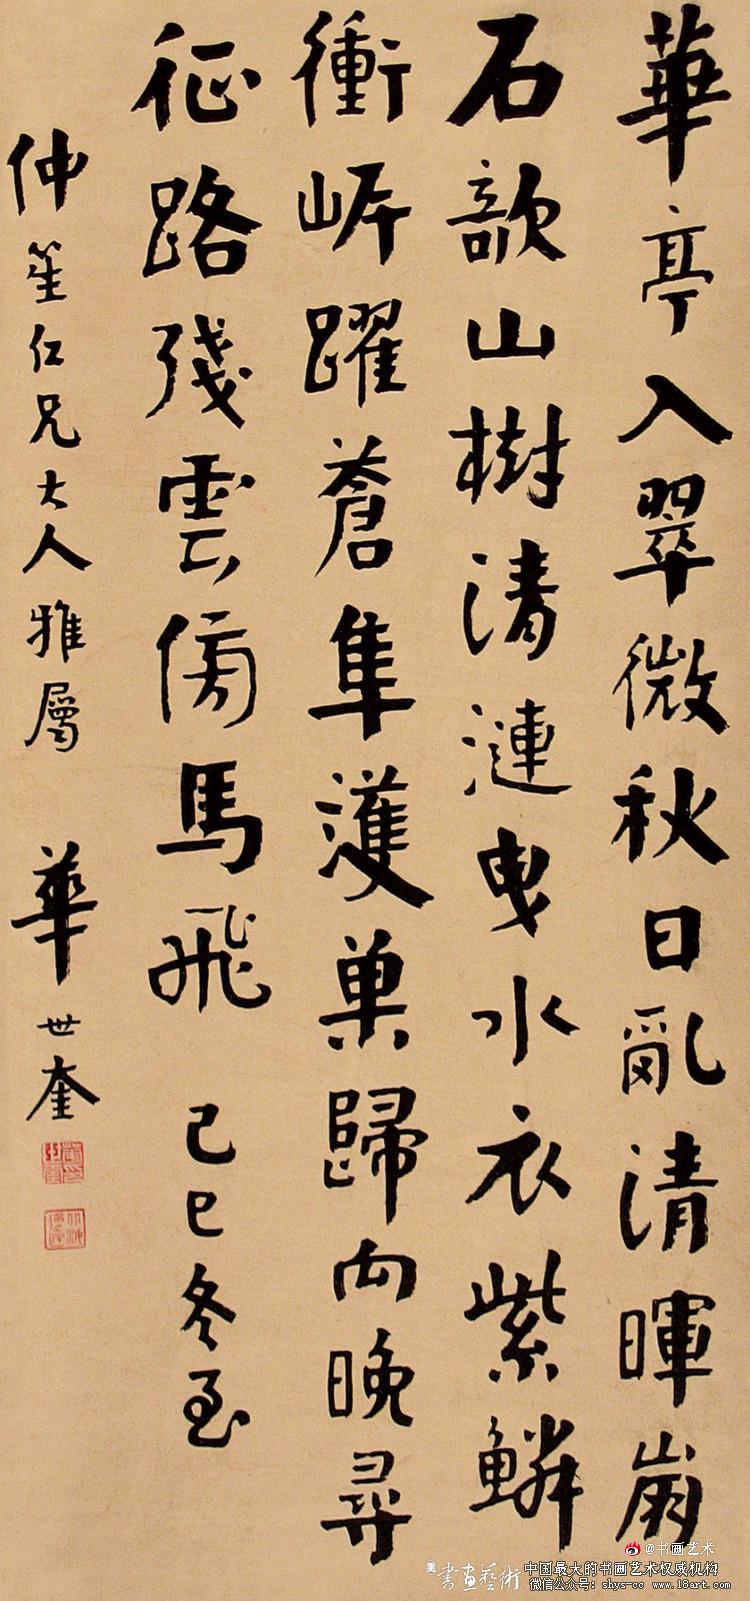 華亭入翠微秋日亂清暉崩
石欹山樹清漣曳水衣紫鱗
衝岸躍蒼隼護巢歸向晚尋
征路殘雲傍馬飛 己巳冬至
仲笙仁兄大人雅屬 華世奎
@书画艺术
書畫藝術
中国最大的书画艺术权威机构
微信公众号：shys-cc www.18art.com